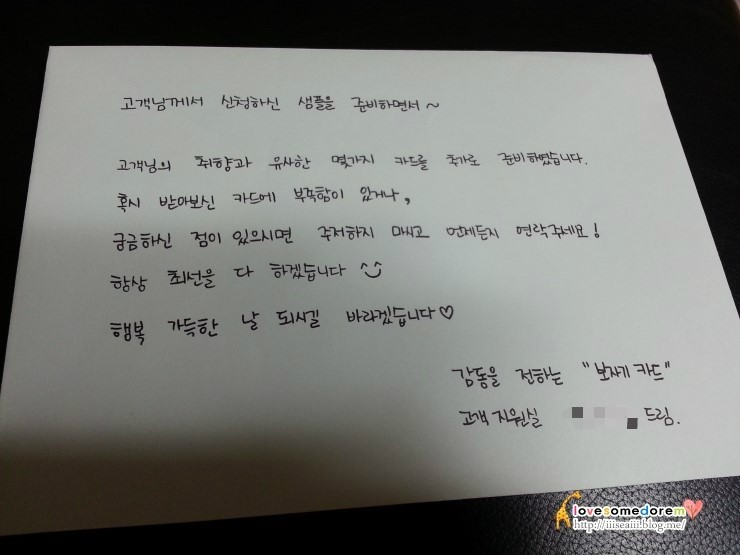 고객님께서 신청하신 샘플을 준비하면서~
고객님의 취향과 유사한 몇가지 카드를 추가로 준비하였습니다.
혹시 받아보신 카드에 부족함이 있거나,
궁금하신 점이 있으시면 주저하지 마시고 언제든지 연락주세요!
항상 최선을 다 하겠습니다
행복 가득한 날 되시길 바라겠습니다♡
감동을 전하는 "보자기 카드"
고객지원실 드림.
lovesomedorem
http://iiiseaiii.blog.me/